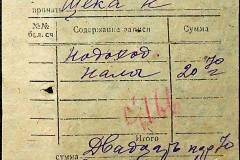 принять Щека Н
№№ бал. сч Содержание записи Сумма
Подоход.
налог 20 70
Итого
сумма Двадцать руб 70